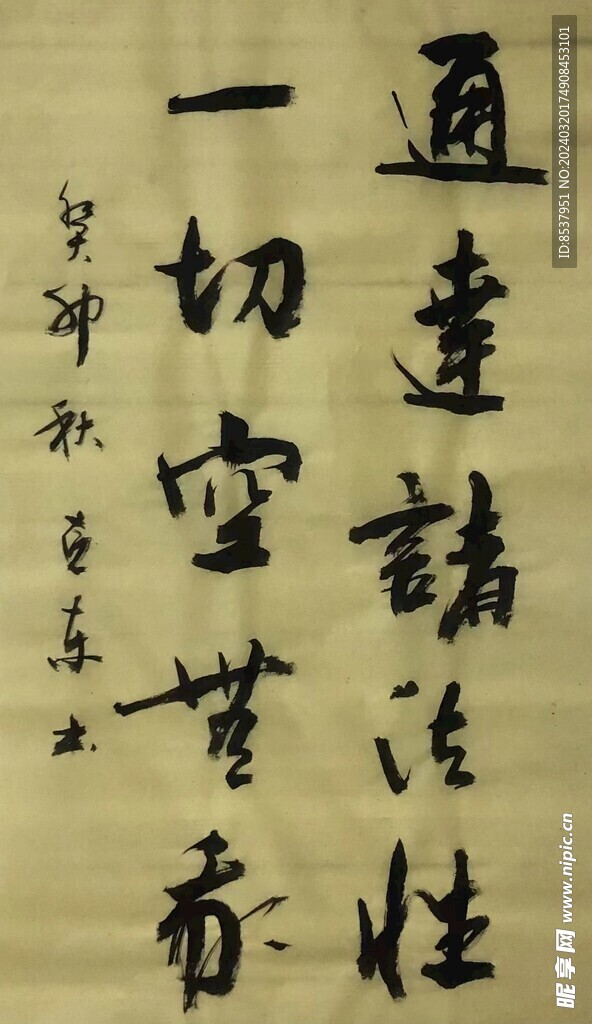 通達諸法性
一切空無我
癸卯秋 克東书
ID:8537951 NO:20240320174908453101
昵享网 www.nipic.cn